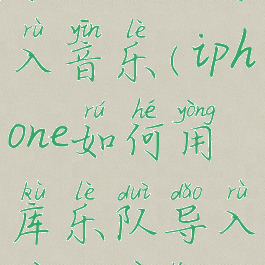 rù yīn lè
入音乐(iph
rú hé yòng
one如何用
kù lè duì dǎo rù
库乐队导入